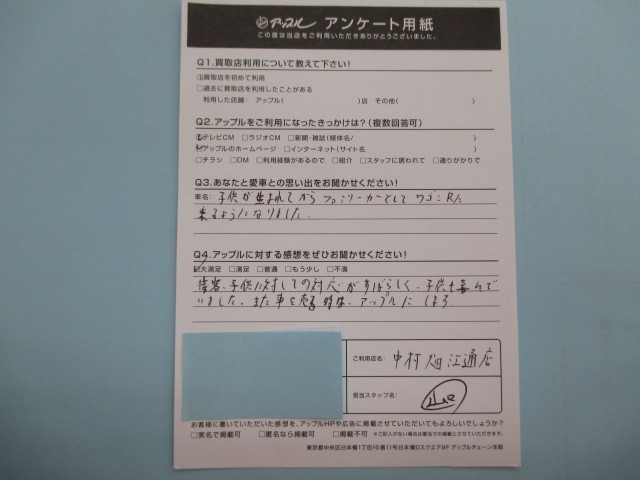 アップル アンケート用紙
この度は当店をご利用いただきありがとうございました。
Q1.買取店利用について教えて下さい!
買取店を初めて利用
□過去に買取店を利用したことがある
利用した店舗: アップル( )店 その他( )
Q2.アップルをご利用になったきっかけは?(複数回答可)
テレビCM □ラジオCM □新聞・雑誌(媒体名/ )
アップルのホームページ □インターネット(サイト名 )
□チラシ □DM □利用経験があるので □紹介 □スタッフに誘われて □通りがかりで
Q3.あなたと愛車との思い出をお聞かせください!
車名: 子供が生まれてから ファミリーカーとして ワゴンRに
乗るようになりました。
Q4.アップルに対する感想をぜひお聞かせください!
大満足 □満足 □普通 □もう少し □不満
接客、子供に対しての対応がすばらしく、子供も喜んで
いました。また車を売る時は、アップルにしよう
ご利用店名: 中村畑江通店
担当スタッフ名:
お客様に書いていただいた感想を、アップルHPや広告に掲載させていただいてもよろしいでしょうか?
□実名で掲載可 □匿名なら掲載可 □掲載不可 ※ご記入がない場合は匿名での掲載とさせていただきます。
東京都中央区日本橋1丁目16番11号日本橋Dスクエア9F アップルチェーン本部